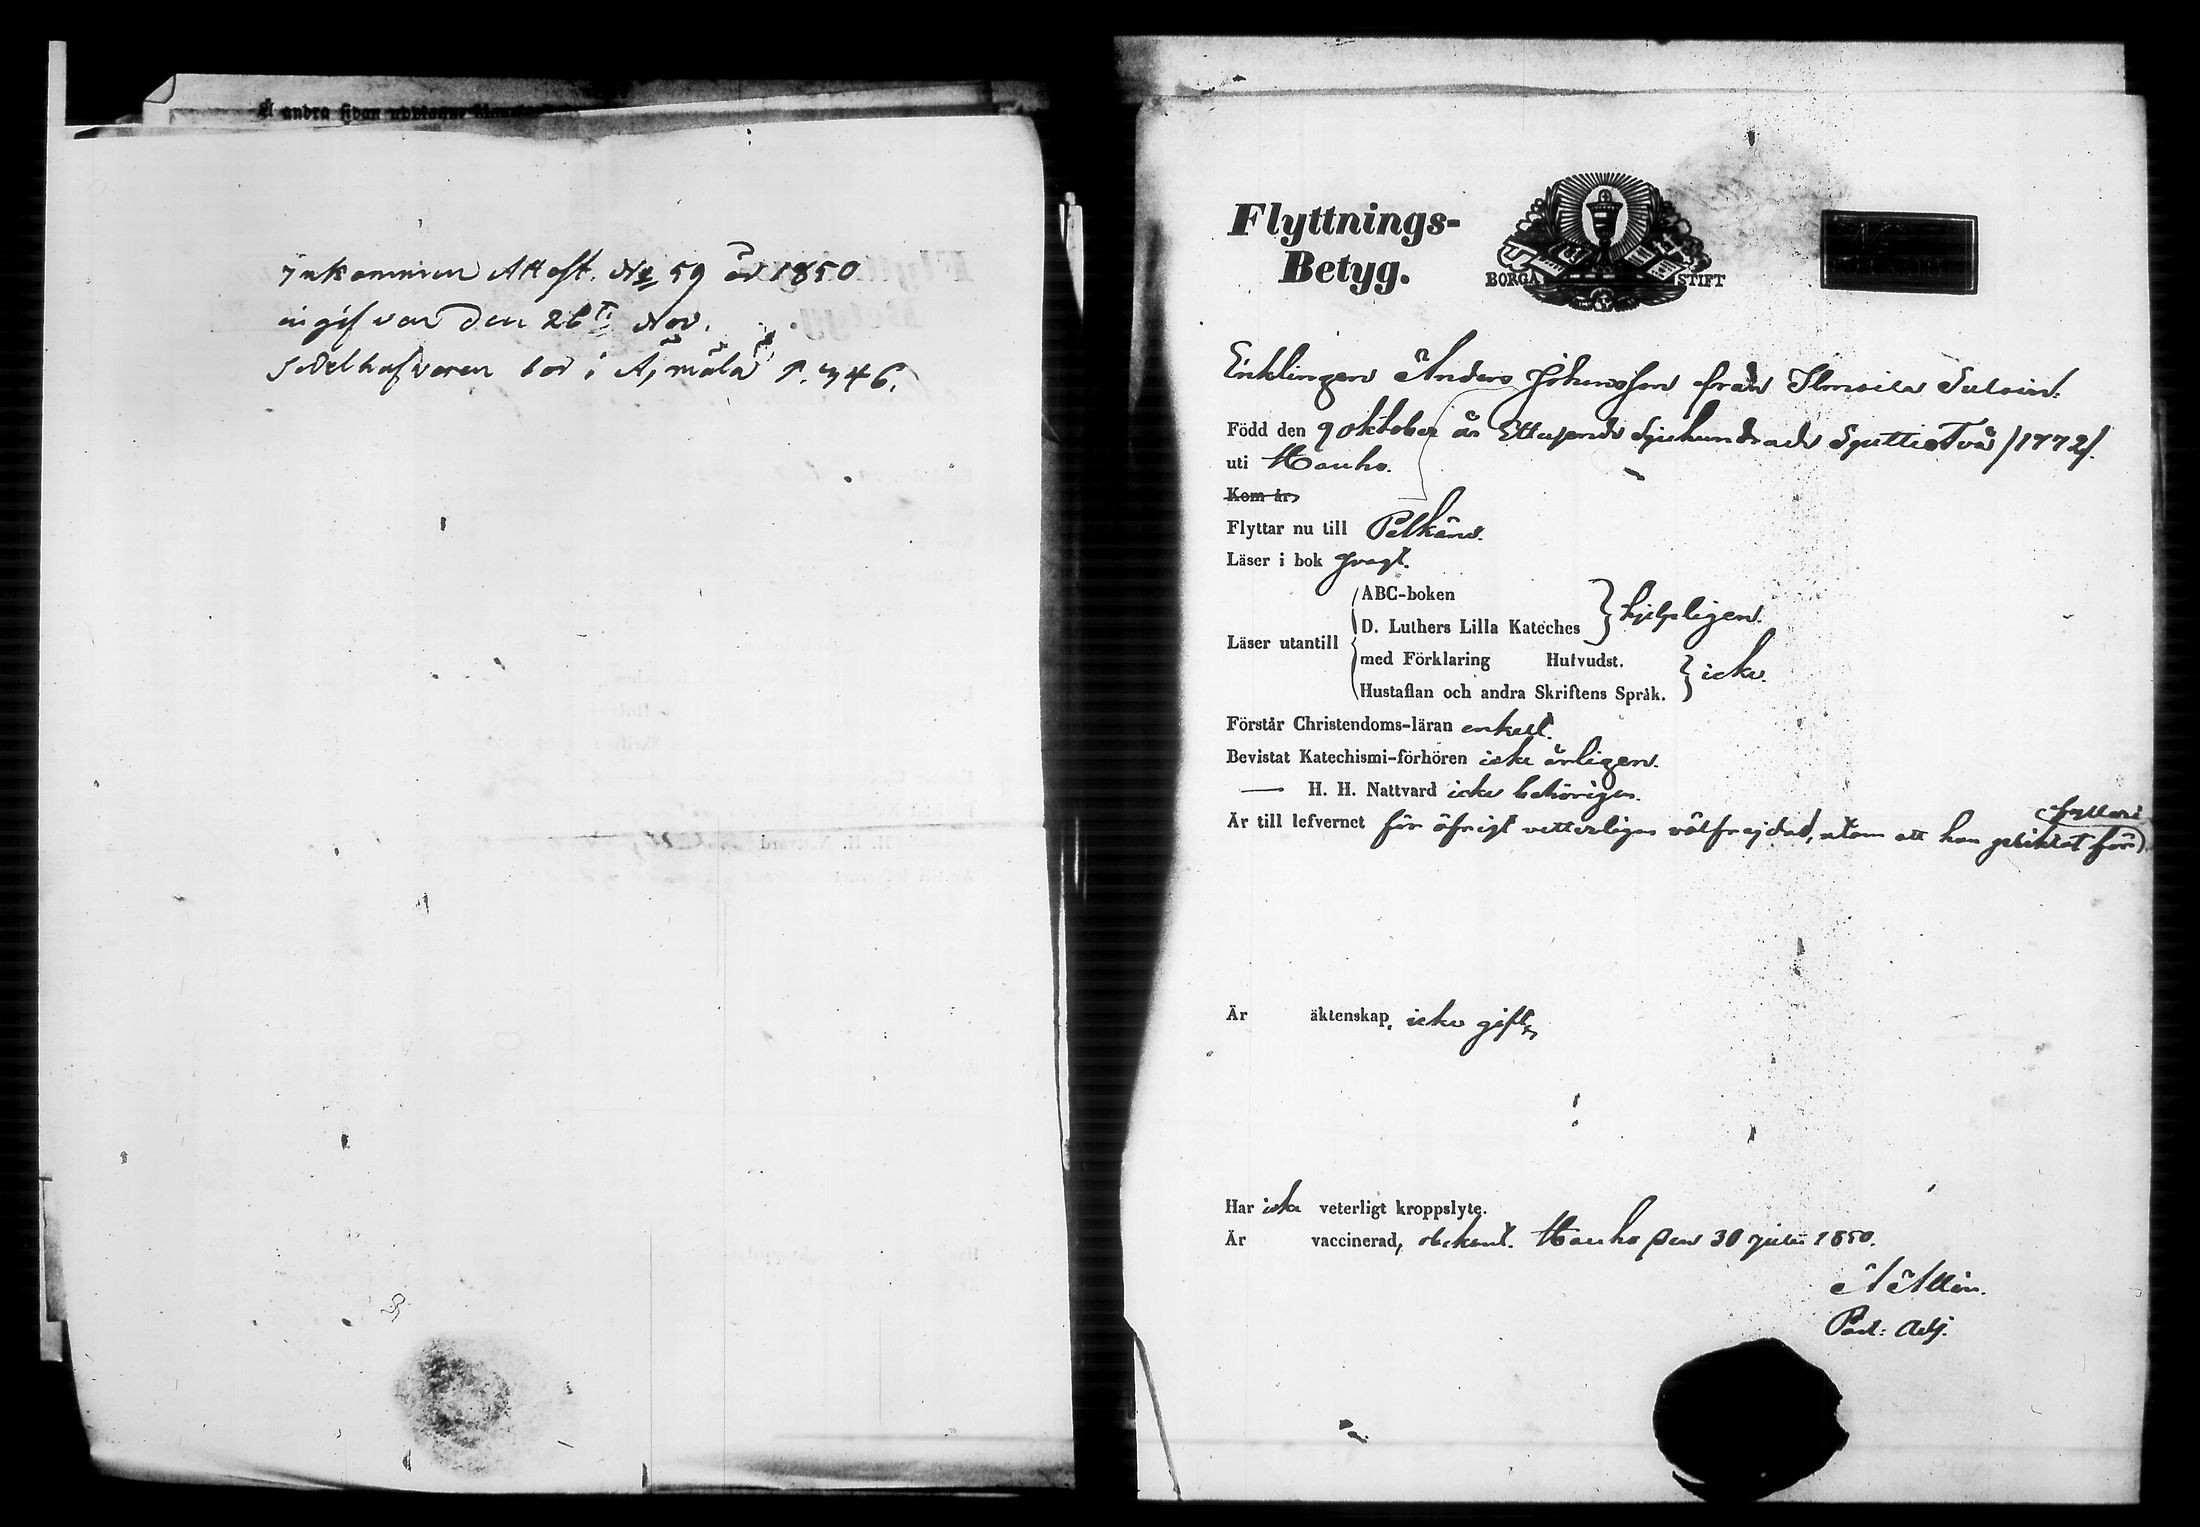 Å andra sidan
Inkommen Attest. No 59 år 1850
ingifven den 26te Nov.
Innehafvaren bor i Äjmälä P. 346.
Flyttnings-
Betyg.
BORGÅ STIFT
Enklingen Anders Johansson från
Född den 9 Oktober år Ettusende Sjuhundrade Sjuttio Två /1772/.
uti Hauho.
Kom år
Flyttar nu till Pelkäne.
Läser i bok svagt.
ABC-boken
D. Luthers Lilla Kateches } hjelpligen.
Läser utantill
med Förklaring Hufvudst.
Hustaflan och andra Skriftens Språk. } icke.
Förstår Christendoms-läran enkelt.
Bevistat Katechismi-förhören icke årligen.
— H. H. Nattvard icke behörigen.
Är till lefvernet för öfrigt vetterligen välfrejdad, utom att han pliktat för fylleri
Är äktenskap, icke gift
Har icke veterligt kroppslyte.
Är vaccinerad, obekant. Hauho den 30 Julii 1850.
Past: Adj.